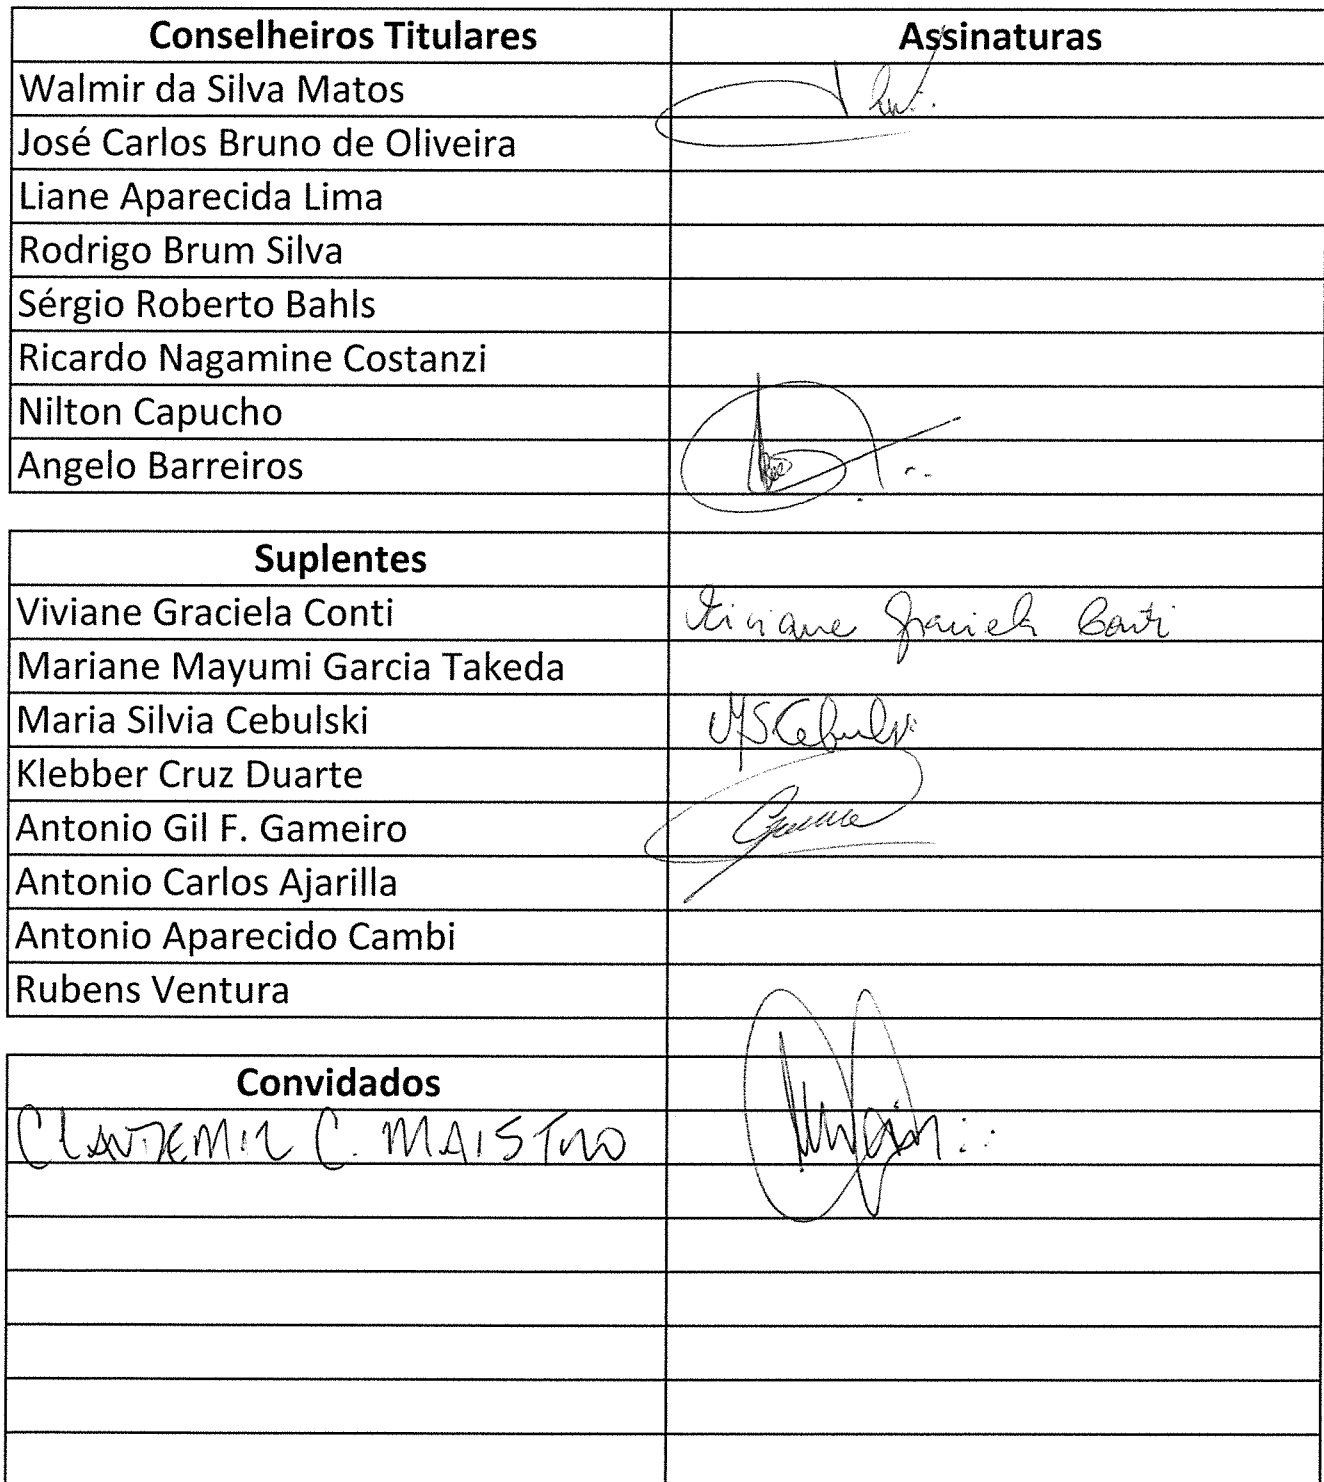 Conselheiros Titulares Assinaturas
Walmir da Silva Matos
José Carlos Bruno de Oliveira
Liane Aparecida Lima
Rodrigo Brum Silva
Sérgio Roberto Bahls
Ricardo Nagamine Costanzi
Nilton Capucho
Angelo Barreiros
Suplentes
Viviane Graciela Conti Viviane Graciela Conti
Mariane Mayumi Garcia Takeda
Maria Silvia Cebulski MSCebulski
Klebber Cruz Duarte
Antonio Gil F. Gameiro
Antonio Carlos Ajarilla
Antonio Aparecido Cambi
Rubens Ventura
Convidados
CLAUDEMIR C. MAISTRO